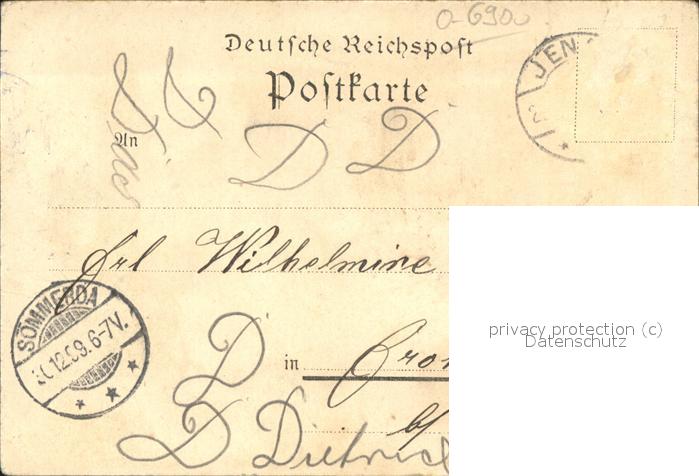 O-690
Deutsche Reichspost
Postkarte
JEN
An
D D D D
Frl Wilhelmine
SÖMMERDA
12.99.6-7V.
in
b/
D
D Dietrich
privacy protection (c)
Datenschutz